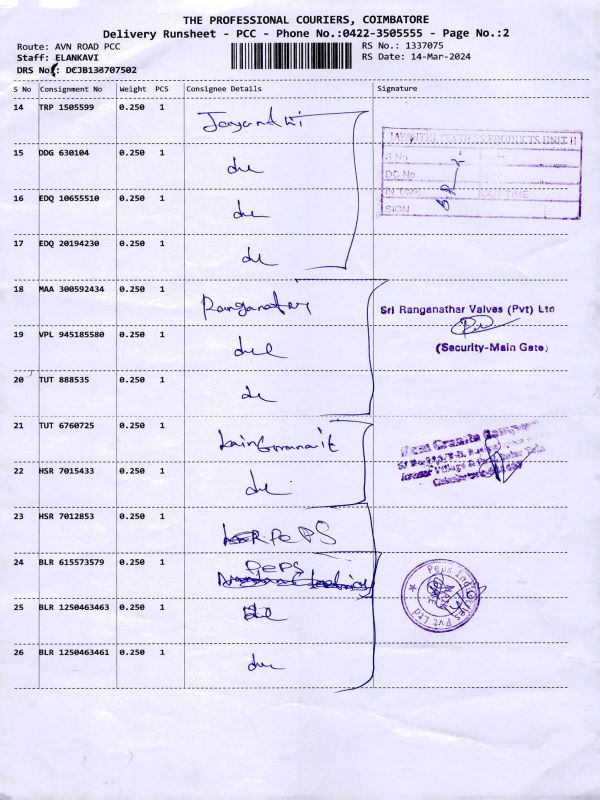 THE PROFESSIONAL COURIERS, COIMBATORE
Delivery Runsheet - PCC - Phone No.:0422-3505555 - Page No.:2
Route: AVN ROAD PCC RS No.: 1337075
Staff: ELANKAVI RS Date: 14-Mar-2024
DRS No: DCJB130707502
S No Consignment No Weight PCS Consignee Details Signature
14 TRP 1505599 0.250 1 Jayandhi
JAYANTHI TEXTILES PRODUCTS UNIT II
S.No
15 DDG 630104 0.250 1 du
DC No
IN TIME OUT TIME
16 EDQ 10655510 0.250 1 du
SIGN
17 EDQ 20194230 0.250 1 du
18 MAA 300592434 0.250 1 Ranganathar
Sri Ranganathar Valves (Pvt) Ltd
19 VPL 945185580 0.250 1 du
(Security-Main Gate)
20 TUT 888535 0.250 1 du
21 TUT 6760725 0.250 1
22 HSR 7015433 0.250 1 du
23 HSR 7012853 0.250 1 PePS
24 BLR 615573579 0.250 1 PePS
Peps Industries Pvt Ltd
25 BLR 1250463463 0.250 1 du
26 BLR 1250463461 0.250 1 du